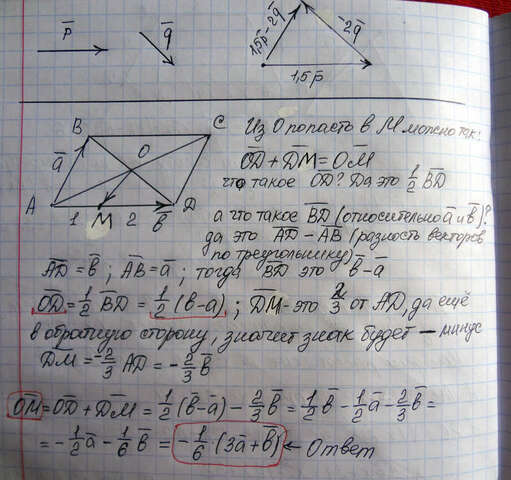 p̅
q̅
1,5p̅-2q̅
-2q̅
1,5p̅
B
C
a̅
O
A
1
M
2
b̅
D
Из О попасть в М можно так:
O̅D̅ + D̅M̅ = O̅M̅
что такое O̅D̅? Да это 1/2 B̅D̅
а что такое B̅D̅ (относительно a̅ и b̅)?
да это A̅D̅ - A̅B̅ (разность векторов
по треугольнику)
A̅D̅ = b̅ ; A̅B̅ = a̅ ; тогда B̅D̅ это b̅-a̅
O̅D̅ = 1/2 B̅D̅ = 1/2 (b̅-a̅) ; D̅M̅ - это 2/3 от AD, да ещё
в обратную сторону, значит знак будет — минус
D̅M̅ = -2/3 A̅D̅ = -2/3 b̅
O̅M̅ = O̅D̅ + D̅M̅ = 1/2 (b̅-a̅) - 2/3 b̅ = 1/2 b̅ - 1/2 a̅ - 2/3 b̅ =
= -1/2 a̅ - 1/6 b̅ = -1/6 (3a̅ + b̅) ← Ответ